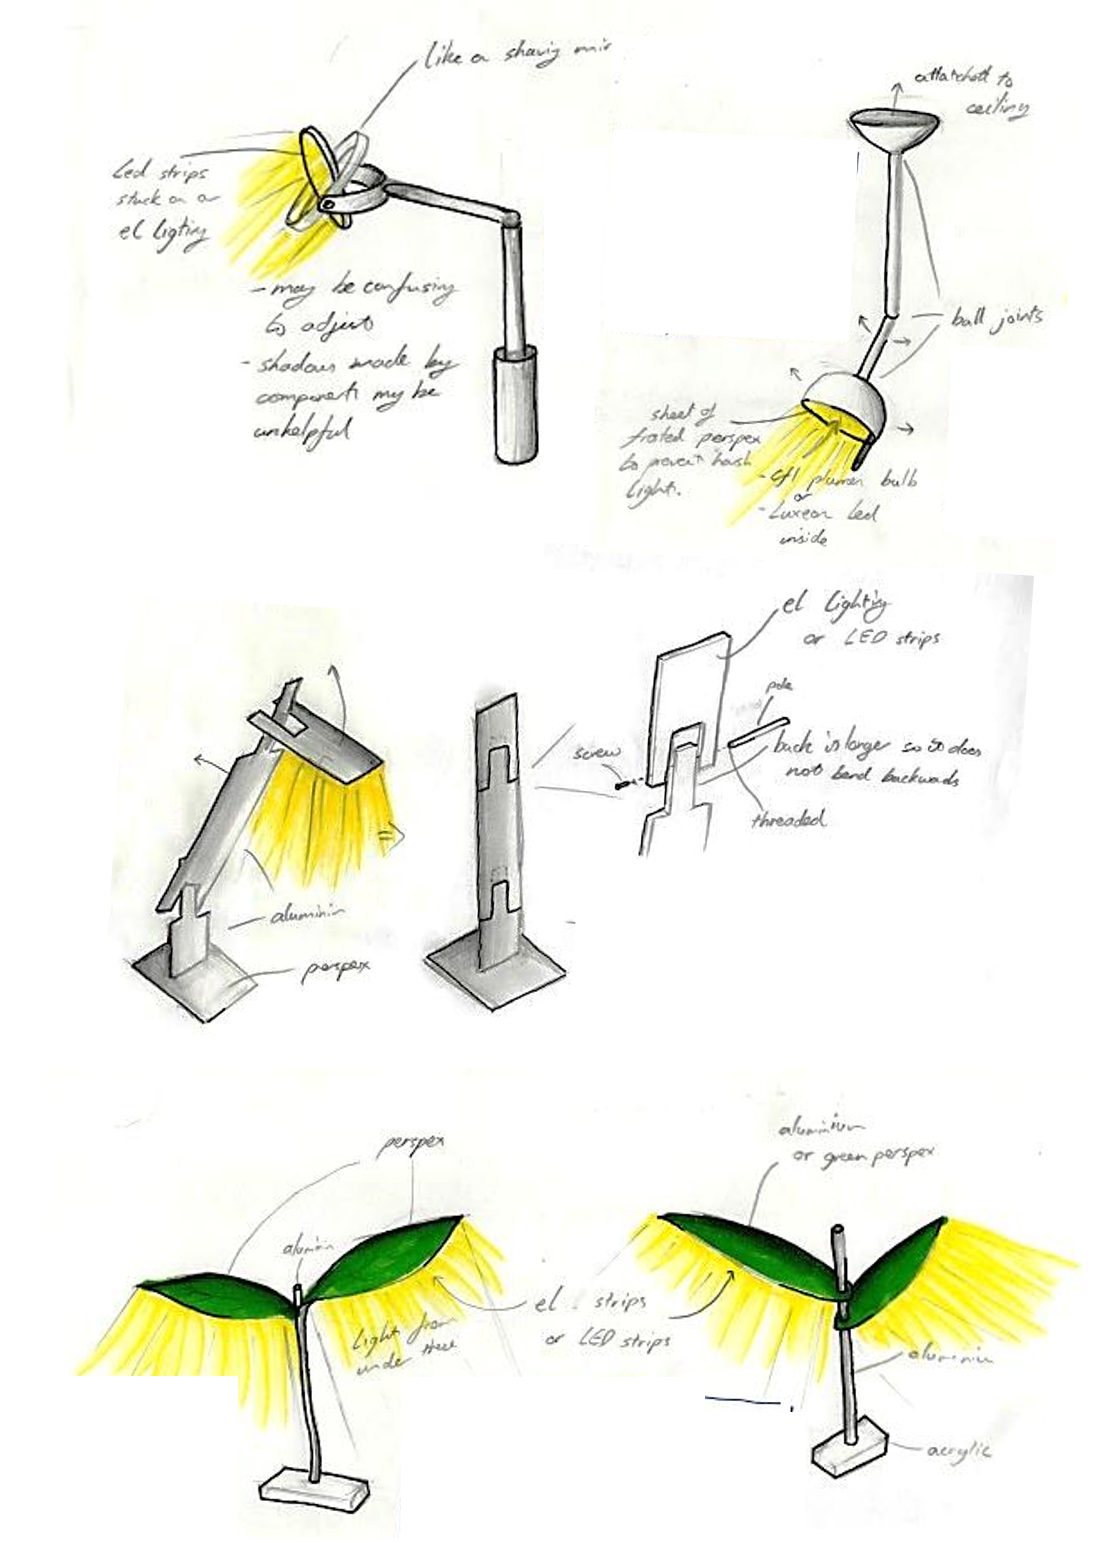 like a shaving mirr
Led strips
stuck on or
el ligting
- may be confusing
to adjust
- shadows made by
components may be
unhelpful
attatched to
ceiling
ball joints
sheet of
frosted perspex
to prevent harsh
light.
- cfl plumen bulb
or
- Luxeon Led
inside
el lighting
or LED strips
pole
screw
back is longer so it does
not bend backwads
threaded
aluminim
perspex
perspex
alumin
Light from
under these
el strips
or LED strips
aluminium
or green perspex
aluminium
acrylic